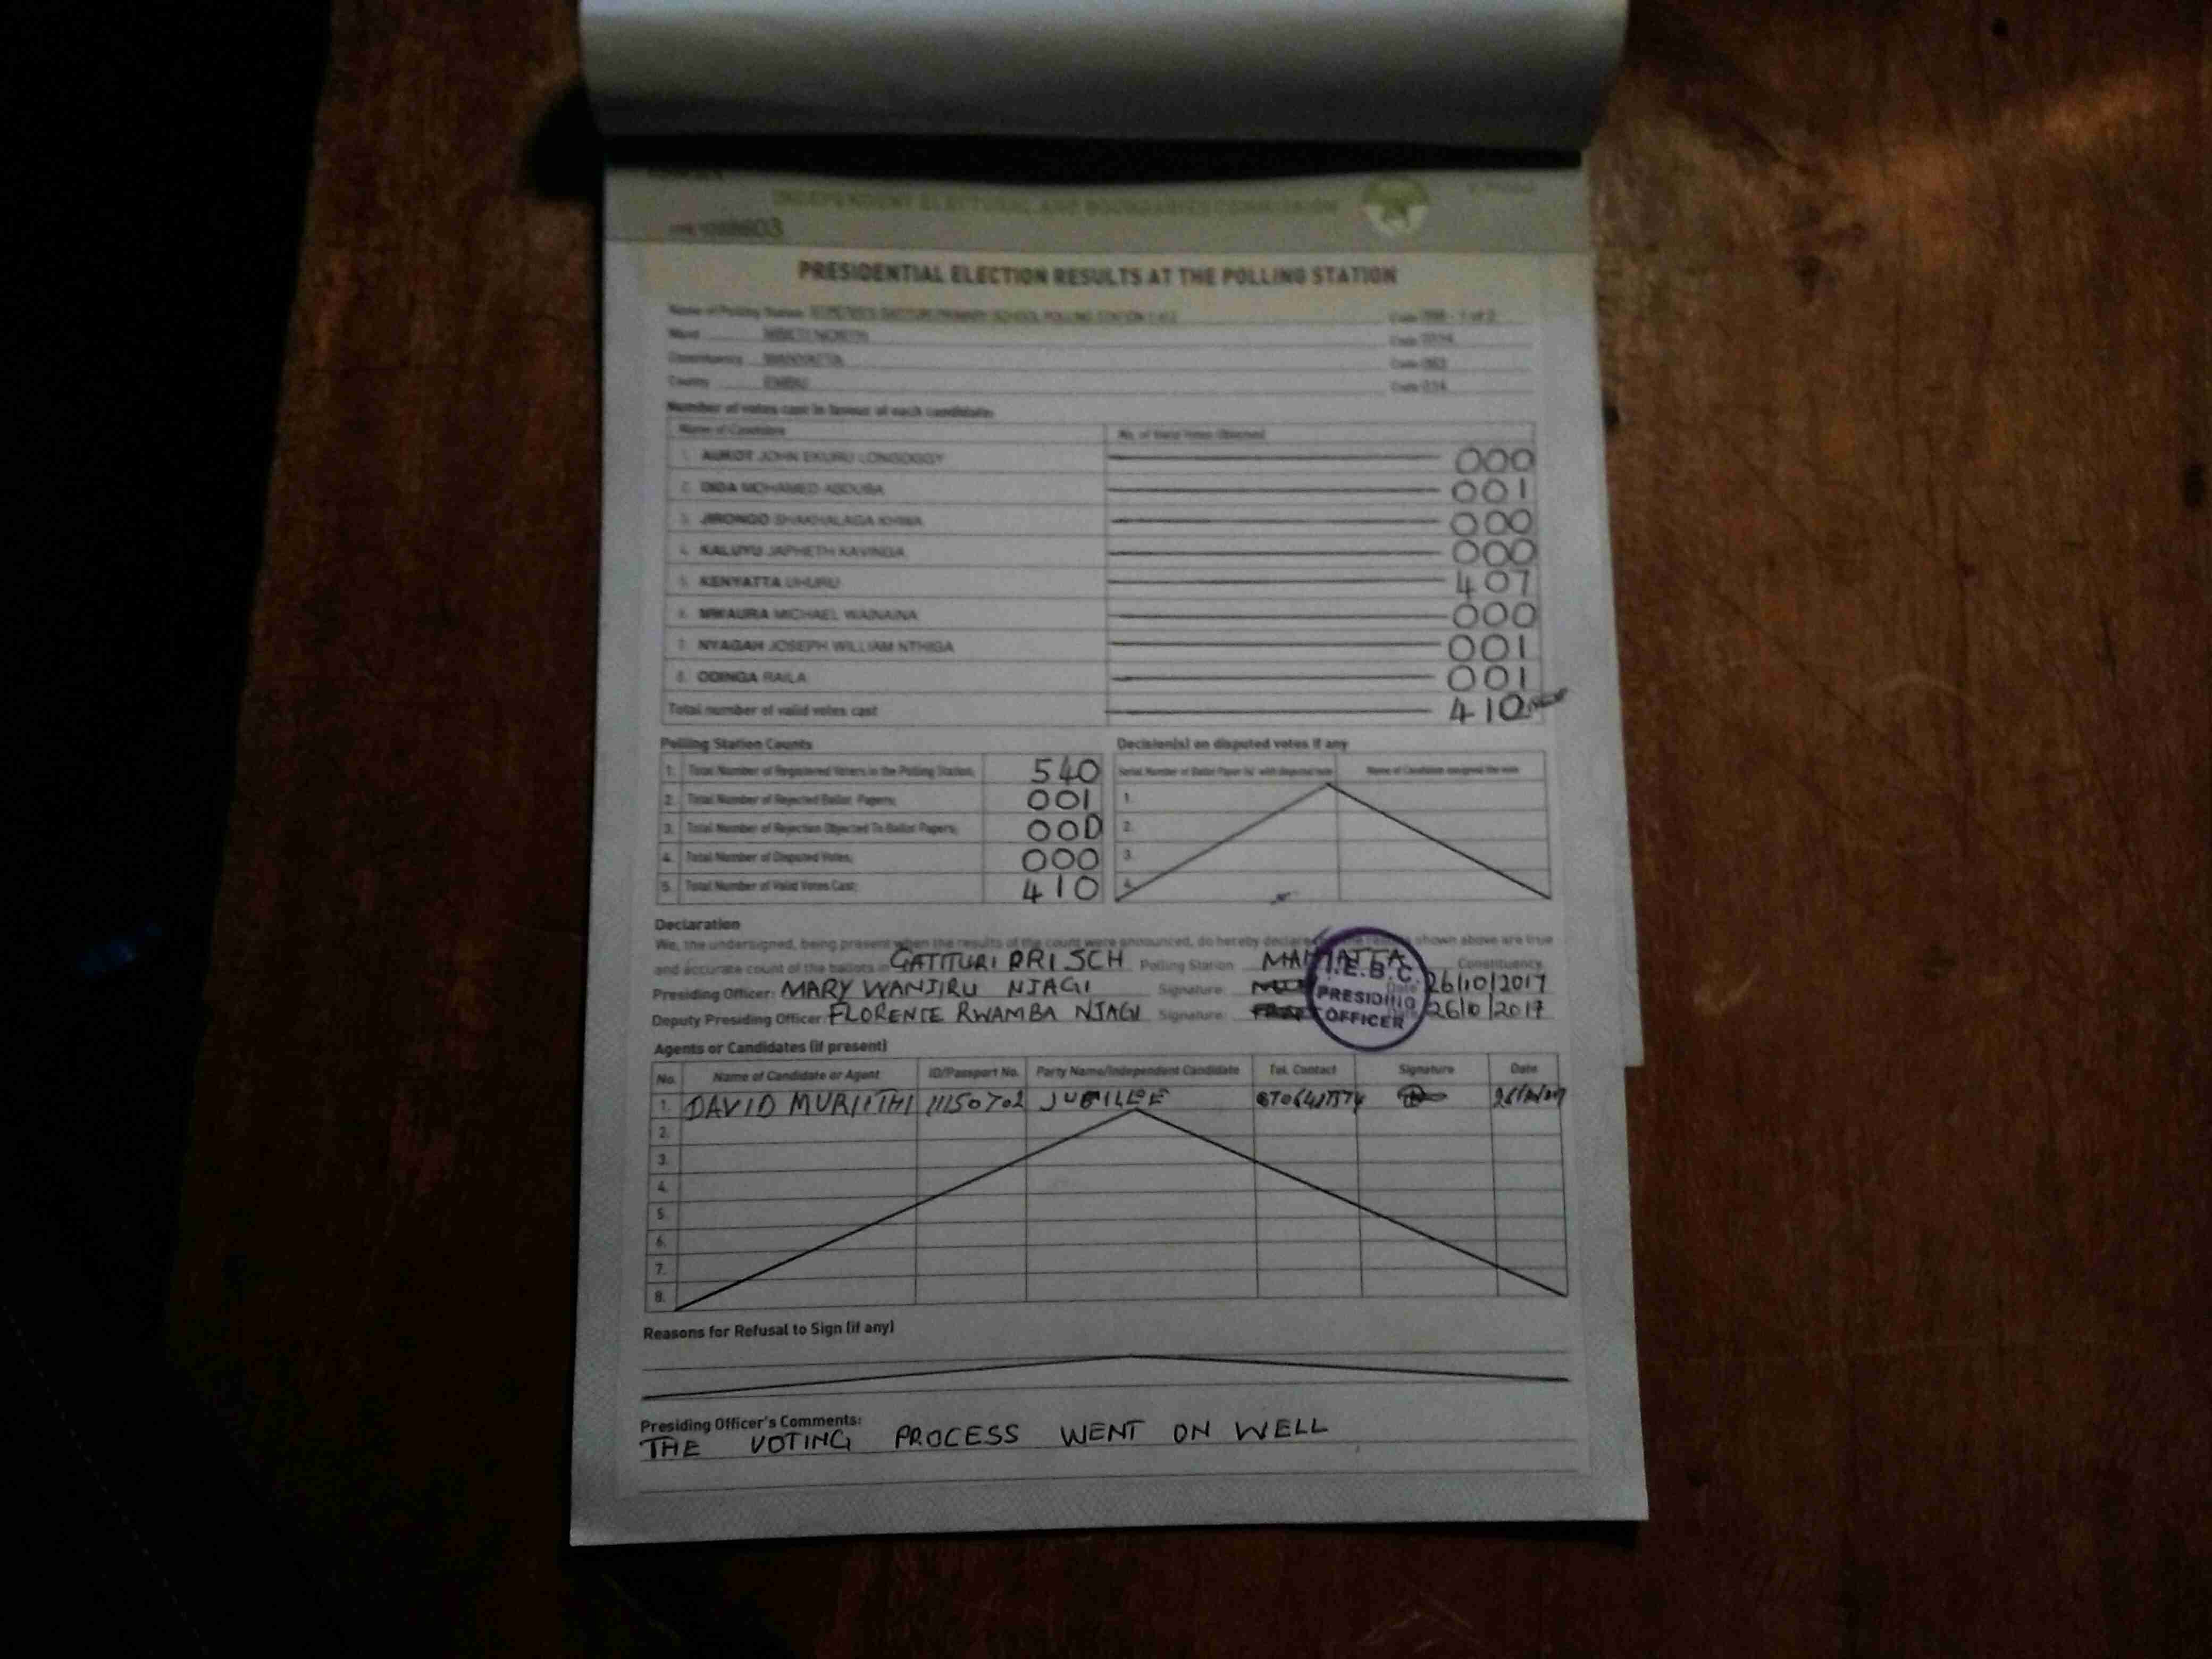 INDEPENDENT ELECTORAL AND BOUNDARIES COMMISSION
PRESIDENTIAL ELECTION RESULTS AT THE POLLING STATION
Name of Polling Station GATITURI PRIMARY SCHOOL POLLING STATION Code 1 of 2
Ward Code
Constituency MANYATTA Code
County EMBU Code 014
Number of votes cast in favour of each candidate:
Name of Candidate No. of Valid Votes Obtained
1. AUKOT JOHN EKURU LONGOGGY 000
2. DIDA MOHAMED ABDUBA 001
3. JIRONGO SHAKHALAGA KHWA 000
4. KALUYU JAPHETH KAVINGA 000
5. KENYATTA UHURU 407
6. MWAURA MICHAEL WAINAINA 000
7. NYAGAH JOSEPH WILLIAM NTHIGA 001
8. ODINGA RAILA 001
Total number of valid votes cast 410
Polling Station Counts
1. Total Number of Registered Voters in the Polling Station; 540
2. Total Number of Rejected Ballot Papers; 001
3. Total Number of Rejection Objected To Ballot Papers; 000
4. Total Number of Disputed Votes; 000
5. Total Number of Valid Votes Cast; 410
Decision(s) on disputed votes if any
Serial Number of Ballot Paper (s) with disputed vote Name of Candidate assigned the vote
1.
2.
3.
4.
Declaration
We, the undersigned, being present when the results of the count were announced, do hereby declare the results shown above are true
and accurate count of the ballots in GATITURI PRI SCH Polling Station MANYATTA Constituency.
Presiding Officer: MARY WANJIRU NJAGI Signature: Date 26/10/2017
Deputy Presiding Officer: FLORENCE RWAMBA NJAGI Signature: Date 26/10/2017
I.E.B.C.
PRESIDING
OFFICER
Agents or Candidates (if present)
No. Name of Candidate or Agent ID/Passport No. Party Name/Independent Candidate Tel. Contact Signature Date
1. DAVID MURIITHI 11150702 JUBILEE
2.
3.
4.
5.
6.
7.
8.
Reasons for Refusal to Sign (if any)
Presiding Officer's Comments:
THE VOTING PROCESS WENT ON WELL